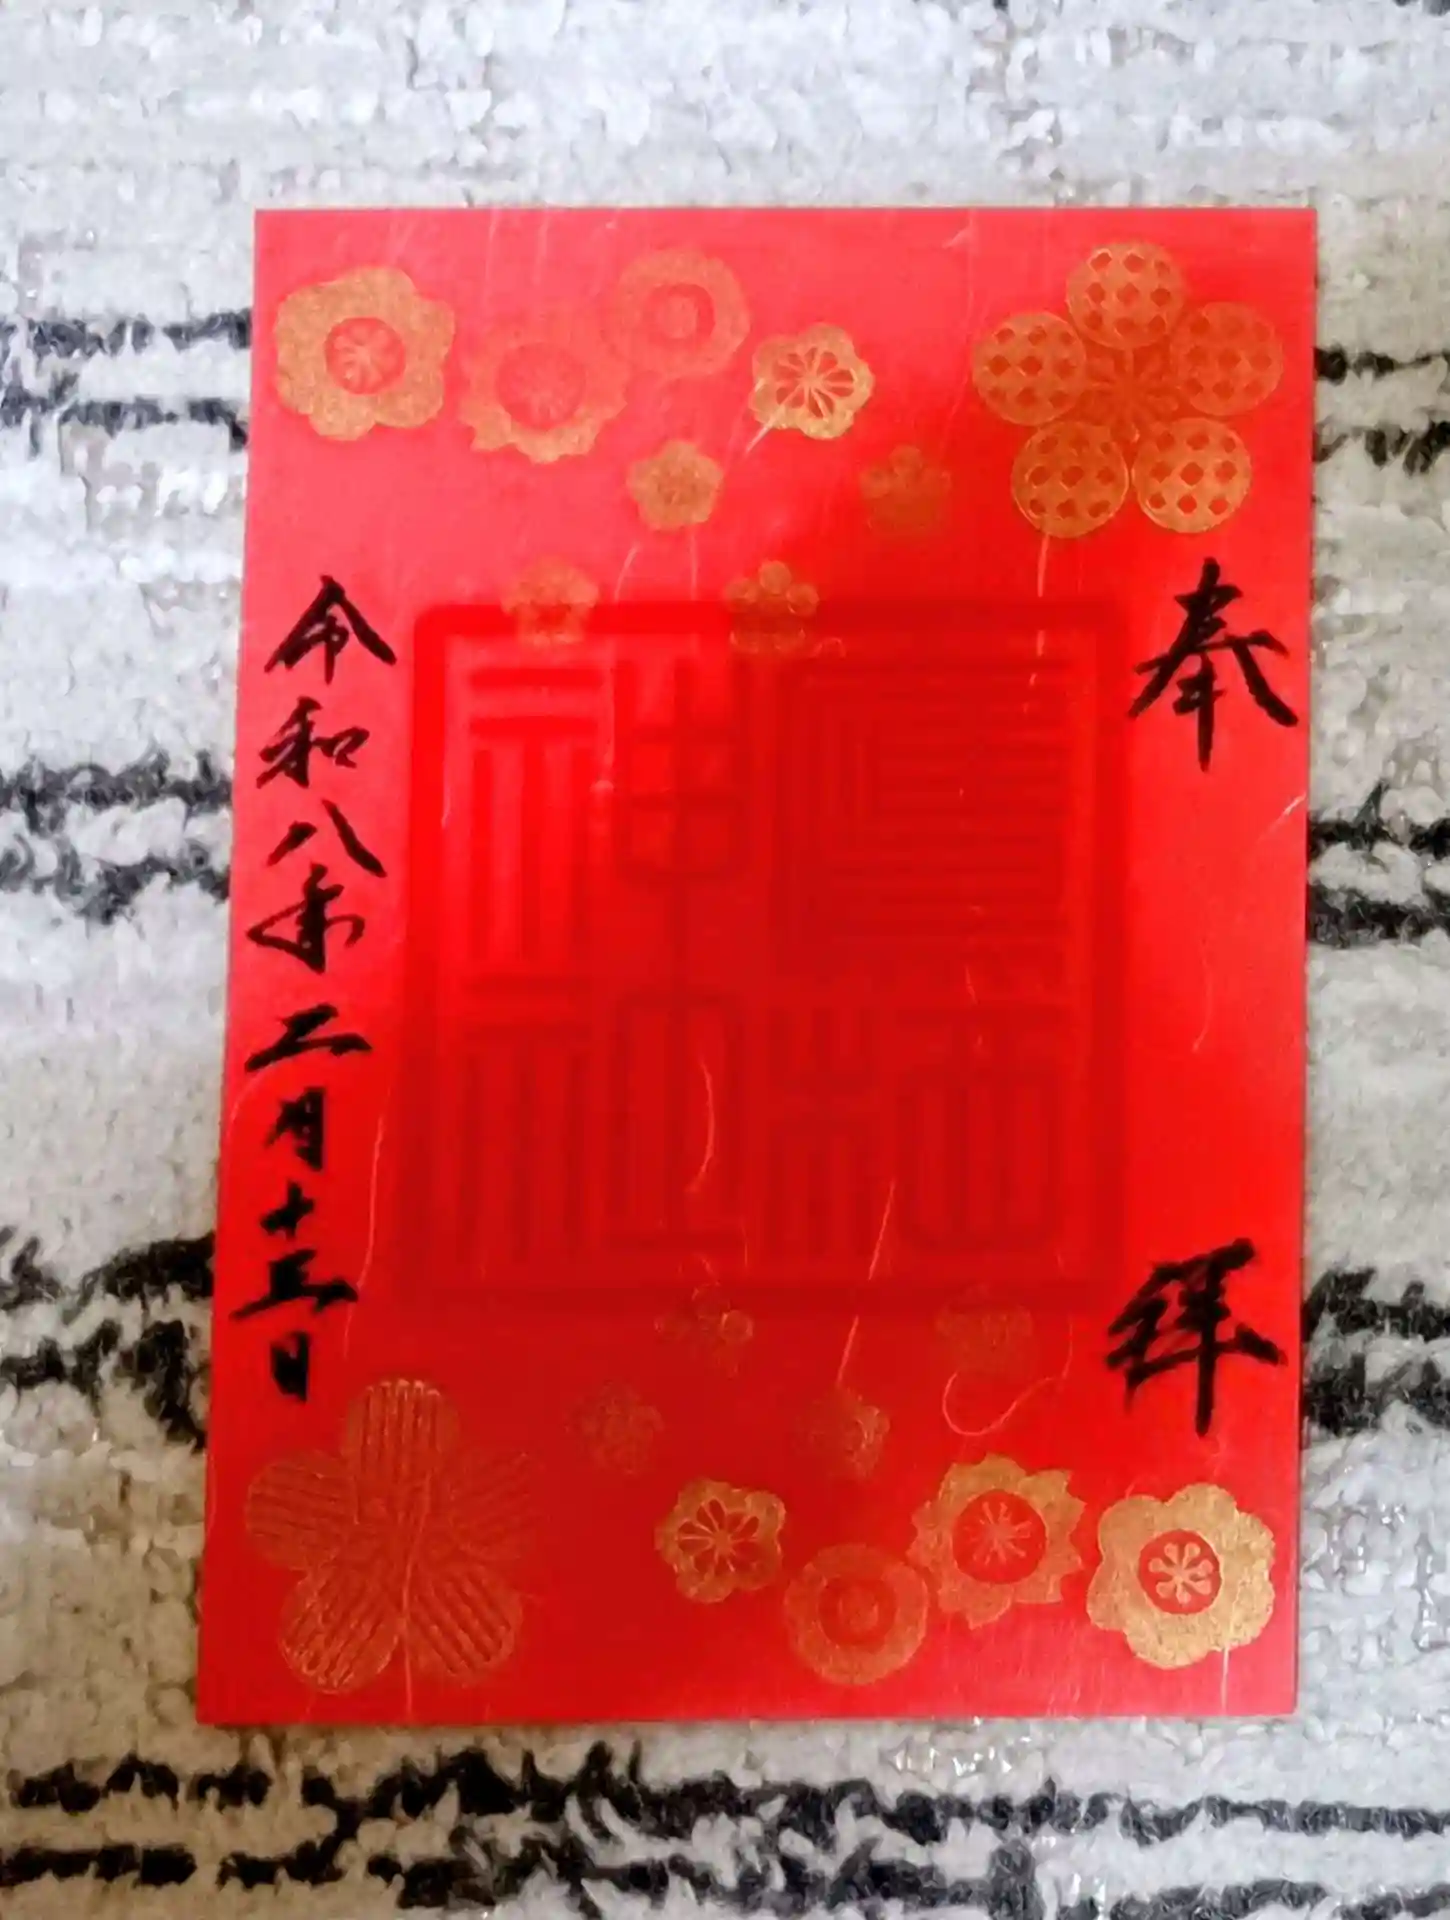 奉拝
令和八年二月十三日